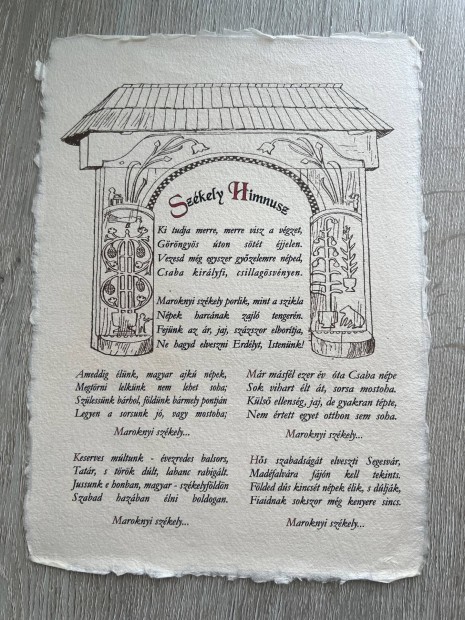 Székely Himnusz
Ki tudja merre, merre visz a végzet,
Göröngyös úton sötét éjjelen.
Vezesd még egyszer győzelemre néped,
Csaba királyfi, csillagösvényen.
Maroknyi székely porlik, mint a szikla
Népek harcának zajló tengerén.
Fejünk az ár, jaj, százszor elborítja,
Ne hagyd elveszni Erdélyt, Istenünk!
Ameddig élünk, magyar ajkú népek,
Megtörni lelkünk nem lehet soha;
Szülessünk bárhol, földünk bármely pontján
Legyen a sorsunk jó, vagy mostoha;
Maroknyi székely...
Keserves múltunk - évezredes balsors,
Tatár, s török dúlt, labanc rabigált.
Jussunk e honban, magyar - székelyföldön
Szabad hazában élni boldogan.
Maroknyi székely...
Már másfél ezer év óta Csaba népe
Sok vihart élt át, sorsa mostoha.
Külső ellenség, jaj, de gyakran tépte,
Nem értett egyet otthon sem soha.
Maroknyi székely...
Hős szabadságát elveszti Segesvár,
Mádéfalvára fájón kell tekints.
Földed dús kincsét népek élik, s dúlják,
Fiaidnak sokszor még kenyere sincs.
Maroknyi székely...